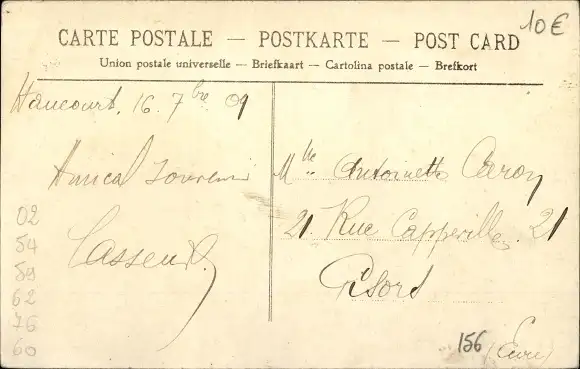 10€
CARTE POSTALE — POSTKARTE — POST CARD
Union postale universelle — Briefkaart — Cartolina postale — Brefkort
Haucourt, 16. 7bre 09
Amical Souvenir
Casseux.
Mlle Antoinette Caron
21. Rue Cappeville. 21
Gisors
(Eure)
156
02
54
59
62
76
60